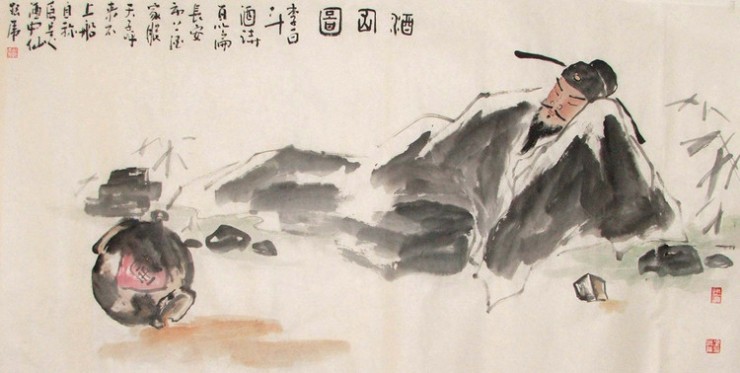 酒圖
李白一
斗
酒詩
百篇
長安
市上酒
家眠
天子呼
来不
上船
自称
臣是
酒中仙